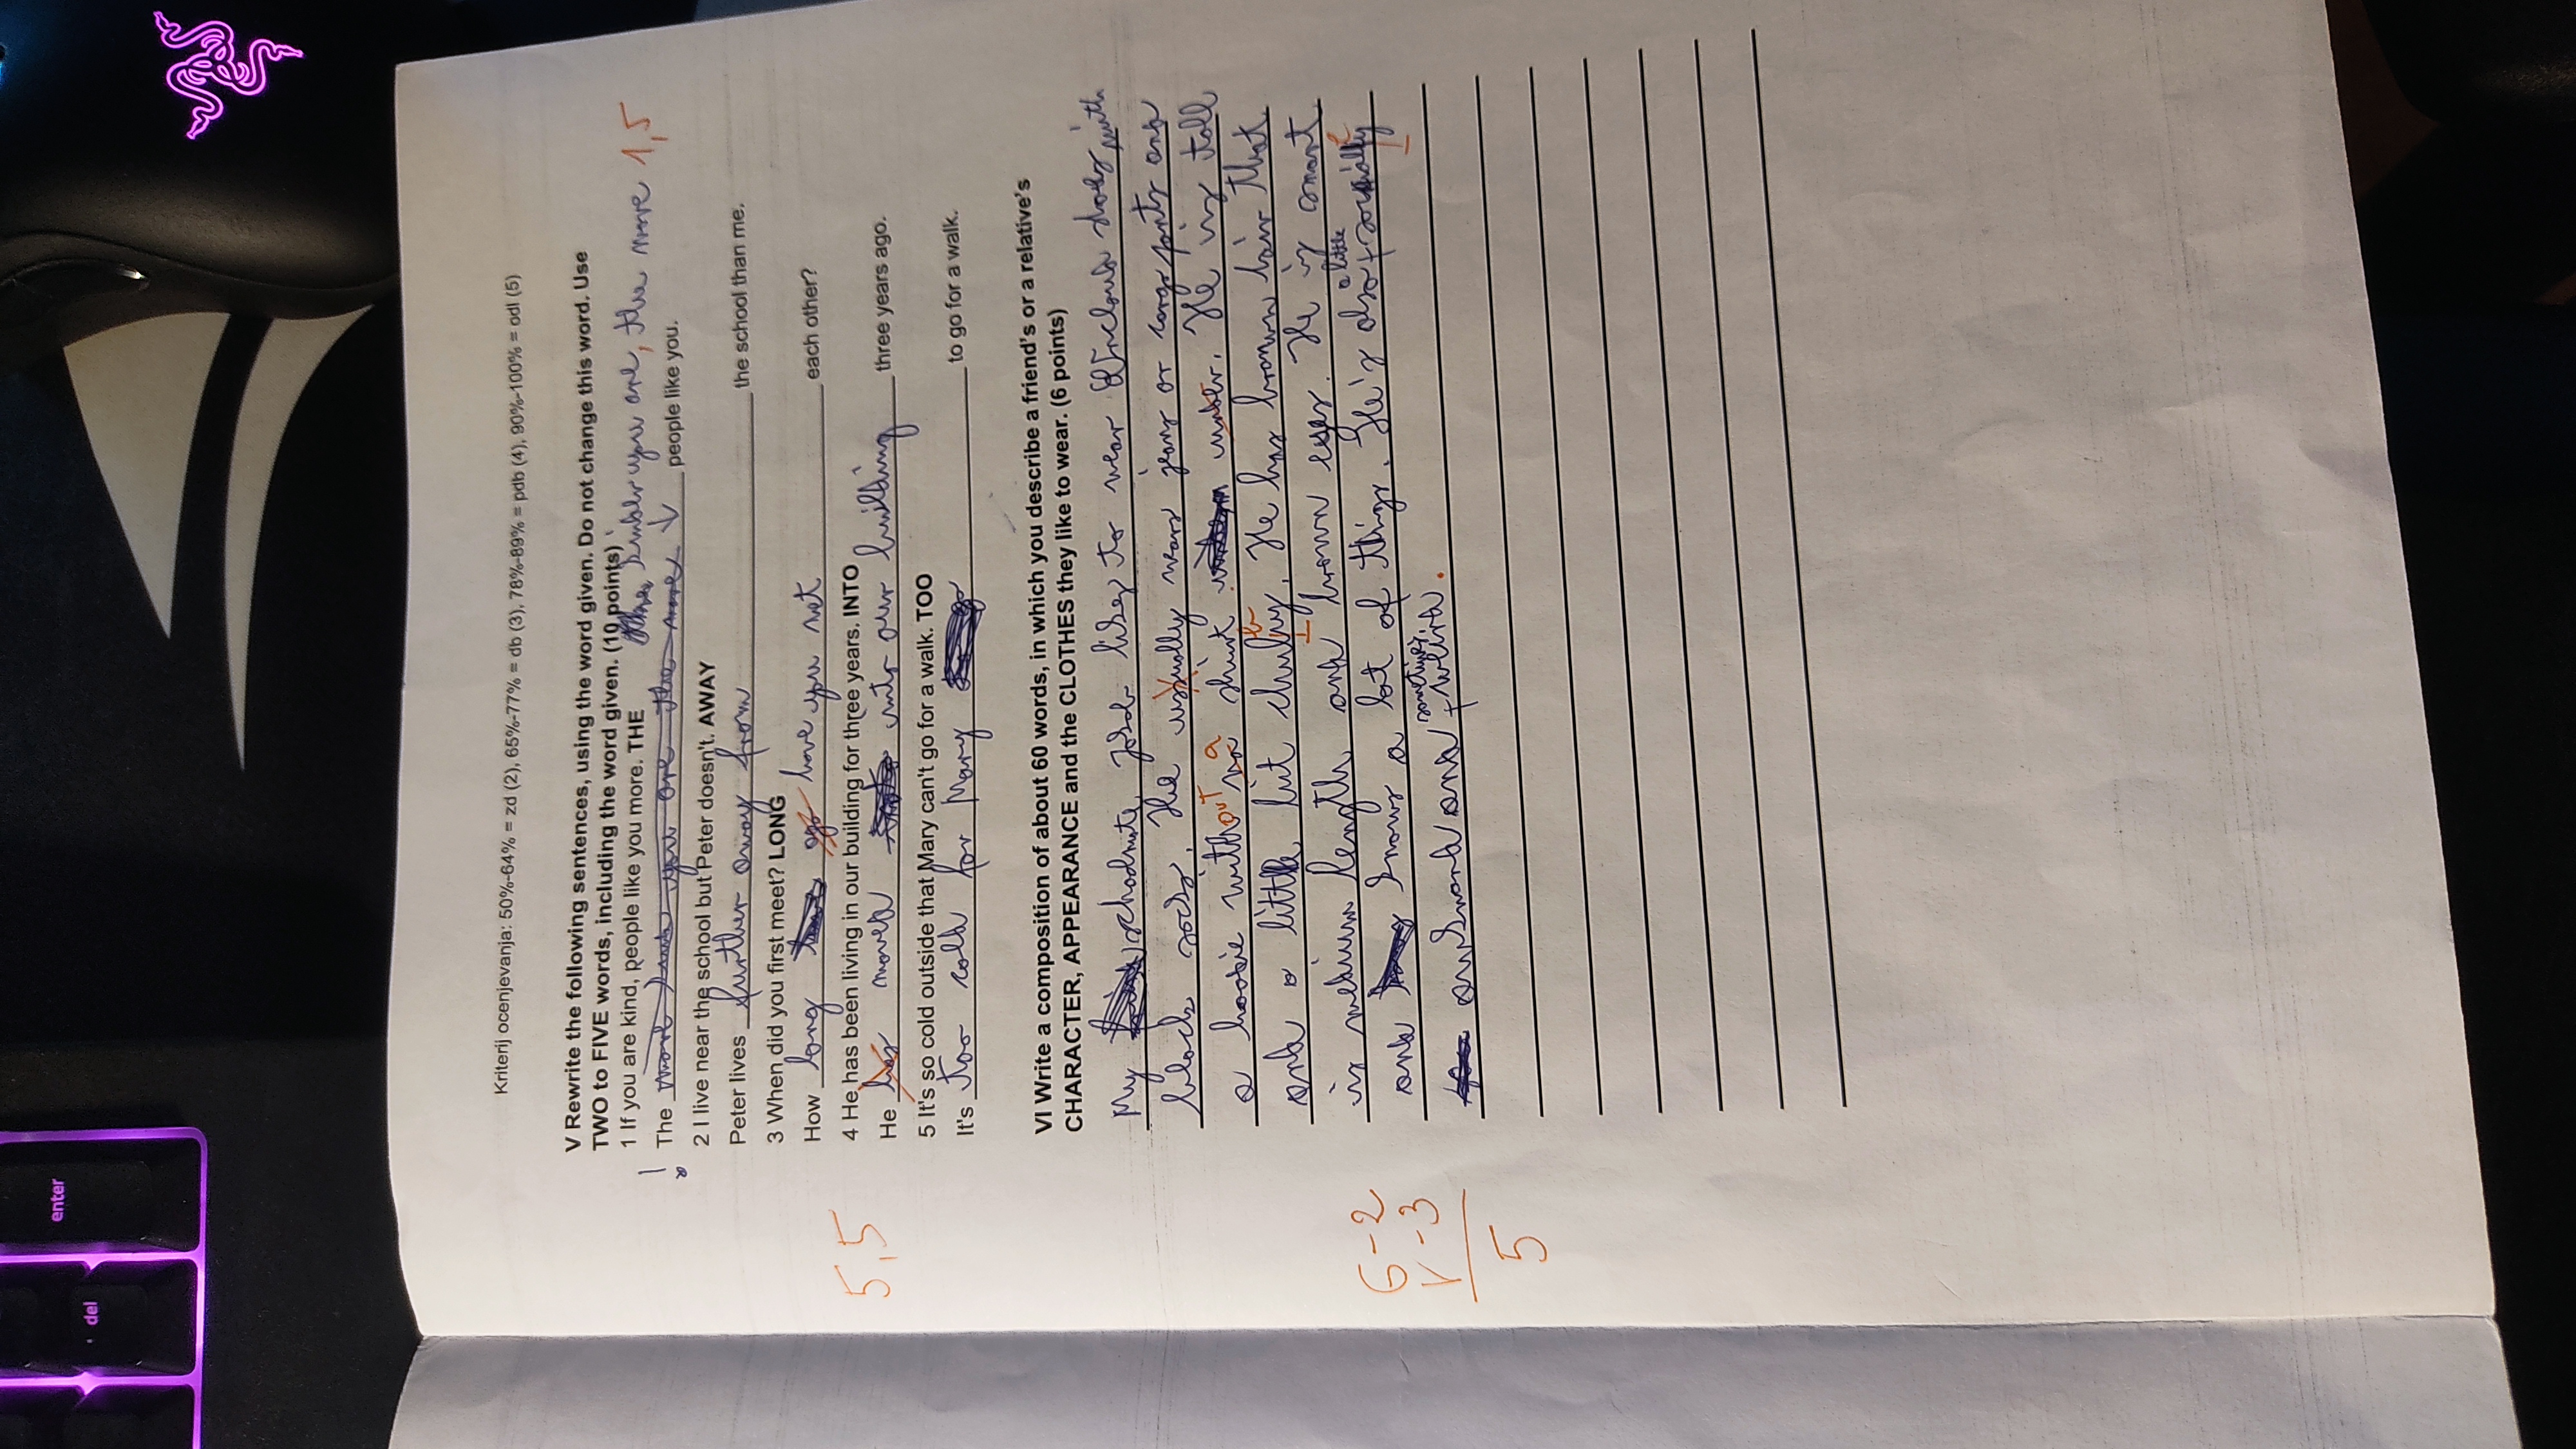 enter
del
Kriterij ocenjevanja: 50%-64% = zd (2), 65%-77% = db (3), 78%-89% = pdb (4), 90%-100% = odl (5)
V Rewrite the following sentences, using the word given. Do not change this word. Use
TWO to FIVE words, including the word given. (10 points)
1 If you are kind, people like you more. THE
kinder you are, the more 1,5
The more kind you are the more people like you.
2 I live near the school but Peter doesn't. AWAY
Peter lives further away from the school than me.
3 When did you first meet? LONG
How long ago have you met each other?
5,5
4 He has been living in our building for three years. INTO
He has moved into our building three years ago.
5 It's so cold outside that Mary can't go for a walk. TOO
It's too cold for Mary to go for a walk.
VI Write a composition of about 60 words, in which you describe a friend's or a relative's
CHARACTER, APPEARANCE and the CLOTHES they like to wear. (6 points)
My schoolmate likes to wear shoes with
black socks. He usually wears jeans or cargo pants and
a hoodie without a shirt under. He is tall
and a little bit chubby. He has brown hair that
is medium length and brown eyes. He is smart
and knows a lot of things. He's also a little socially
awkward and sometimes weird.
6-2
-3
5